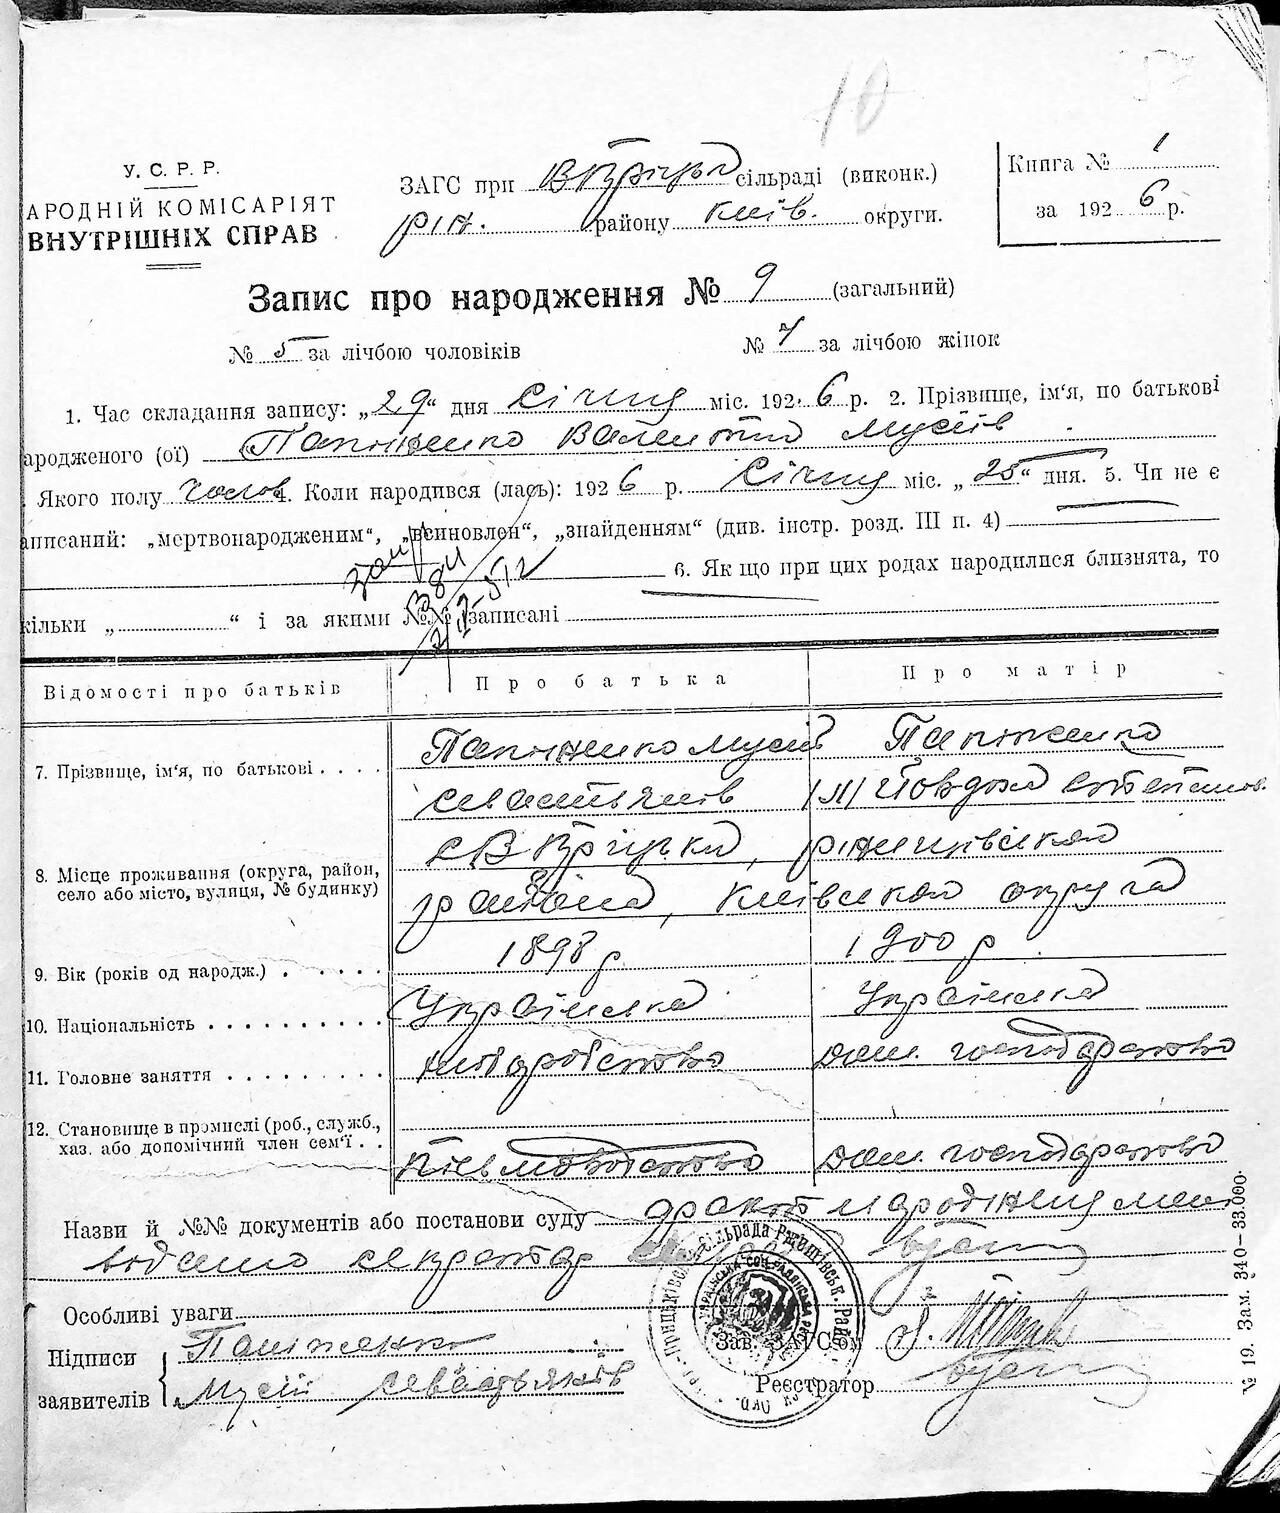 10
У. С. Р. Р.
АРОДНІЙ КОМІСАРІЯТ
ВНУТРІШНІХ СПРАВ
ЗАГС при сільраді (виконк.)
району Київ. округи.
Книга № 1
за 1926 р.
Запис про народження № 9 (загальний)
№ 5 за лічбою чоловіків № 4 за лічбою жінок
1. Час складання запису: „29“ дня Січня міс. 1926 р. 2. Прізвище, ім'я, по батькові
ародженого (ої) Папіженко Валентин Мусіїв
. Якого полу чолов 4. Коли народився (лась): 1926 р. Січня міс. „25“ дня. 5. Чи не є
аписаний: „мертвонародженим“, „всиновлен“, „знайденням“ (див. інстр. розд. III п. 4)
6. Як що при цих родах народилися близнята, то
кільки „ “ і за якими №№ записані
Відомості про батьків Про батька Про матір
7. Прізвище, ім'я, по батькові . . . . Папіженко Мусій Папіженко
Севастьянів Йовдоха Степанов.
8. Місце проживання (округа, район,
село або місто, вулиця, № будинку)
района, Київська округа
9. Вік (років од народж.) . . . . . 1898 р. 1900 р.
10. Національність . . . . . . . . . . Українська Українка
11. Головне заняття . . . . . . . . . хліборобство дом. господарство
12. Становище в промислі (роб., служб.,
хаз. або допомічний член сем'ї . . дом. господарство
Назви й №№ документів або постанови суду
секретар
Особливі уваги
Підписи
заявителів
Папіженко
Мусій Севастьянів
Зав. ЗАГСом
Реєстратор
№ 19. Зам. 340–33.000.